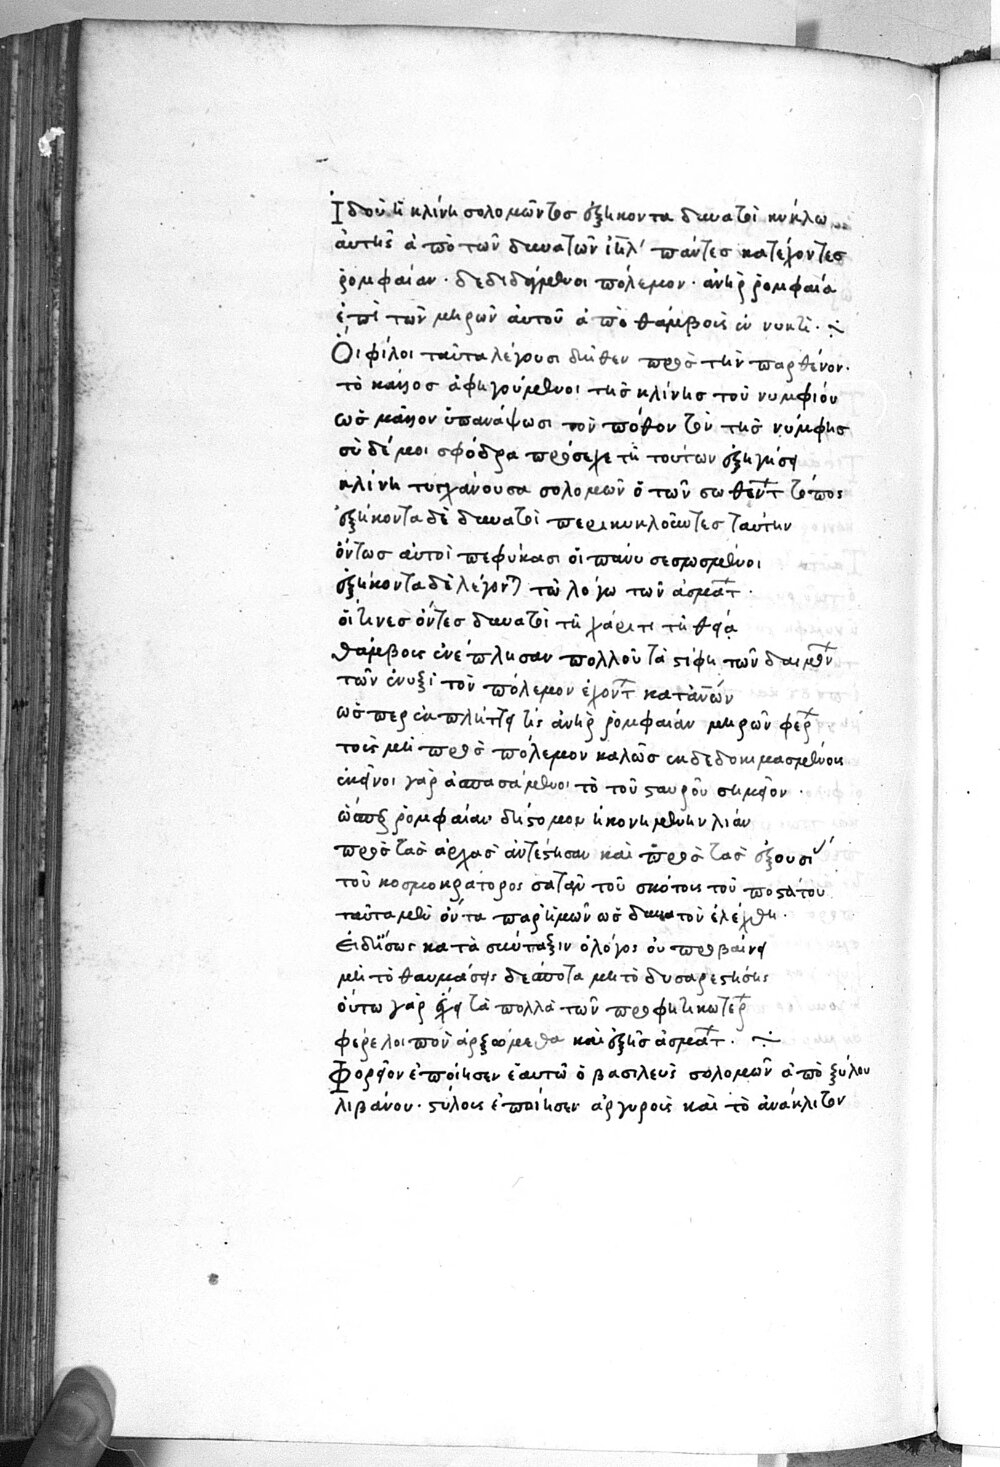 Ἰδοὺ ἡ κλίνη σολομῶντος ἑξήκοντα δυνατοὶ κύκλω
ἀυτῆς ἀπὸ τῶν δυνατῶν ἰηλ΄ πάντες κατέχοντες
ῥομφαίαν · δεδιδαγμένοι πόλεμον · ἀνὴρ ῥομφαία
ἐπὶ τῶν μηρῶν ἀυτοῦ ἀπὸ θάμβους ἐν νυκτί · ÷
Ὁι φίλοι ταῦτα λέγουσι δῆθεν πρὸς τὴν παρθένον ·
τὸ κάλλος ἀφηγούμενοι τῆς κλίνης τοῦ νυμφίου
ὡς μᾶλλον ὑπανάψωσι τὸν πόθον τὸν τῆς νύμφης
σὺ δέ μοι σφόδρα πρόσεχε τῆ τούτων ἐξηγήσει
κλίνη τυγχάνουσα σολομῶν ὁ τῶν σωθέντ τόπος
ἑξήκοντα δὲ δυνατοὶ περικυκλοῦντες ταύτην
ὄντως αὐτοὶ πεφύκασι οἱ πάνυ σεσωσμένοι
ἑξήκοντα δὲ λέγοντ τῶ λόγω τῶν ἀσμάτ ·
οἵτινες ὄντες δυνατοὶ τῆ χάριτι τῆ θεία
θάμβους ἐνέπλησαν πολλοῦ τὰ στίφη τῶν δαιμόν
τῶν ἐνυξὶ τὸν πόλεμον ἐχόντ κατ ἀνῶν
ὥσπερ ἐκπλήττει τίς ἀνὴρ ῥομφαίαν μηρῶν φέρ
τοῖς μὴ πρὸς πόλεμον καλῶς ἐκδεδοκιμασμένοις
ἐκεῖνοι γὰρ σπασάμενοι τὸ τοῦ σταυροῦ σημεῖον ·
ὥσπερ ῥομφαίαν δήστομον ἠκονημένην λίαν
πρὸς τὰς ἀρχὰς ἀντέστησαν καὶ πρὸς τὰς ἐξουσί
τοῦ κοσμοκράτορος σατᾶν τοῦ σκότους τοῦ ποστάτου
ταῦτα μὲν οὖν τα παρ ἡμῶν ὡς δυνατὸν ἐλέχθη ·
Ει δ ἴσως κατὰ σύνταξιν ὁ λόγος οὐ προβαίνει
μὴ τὸ θαυμάσεις δέσποτα μὴ τὸ δυσαρεστήσης
οὕτω γὰρ ἔχει τὰ πολλὰ τῶν προφητικωτέρ
φέρε λοιπὸν ἀρξώμεθα καὶ ἑξῆς ἀσμάτ · ÷
Φορεῖον ἐποίησεν ἑαυτῶ ὁ βασιλεὺς σολομῶν ἀπὸ ξύλου
λιβάνου · στύλους ἐποίησεν ἀργυροῦς καὶ τὸ ἀνάκλιτον